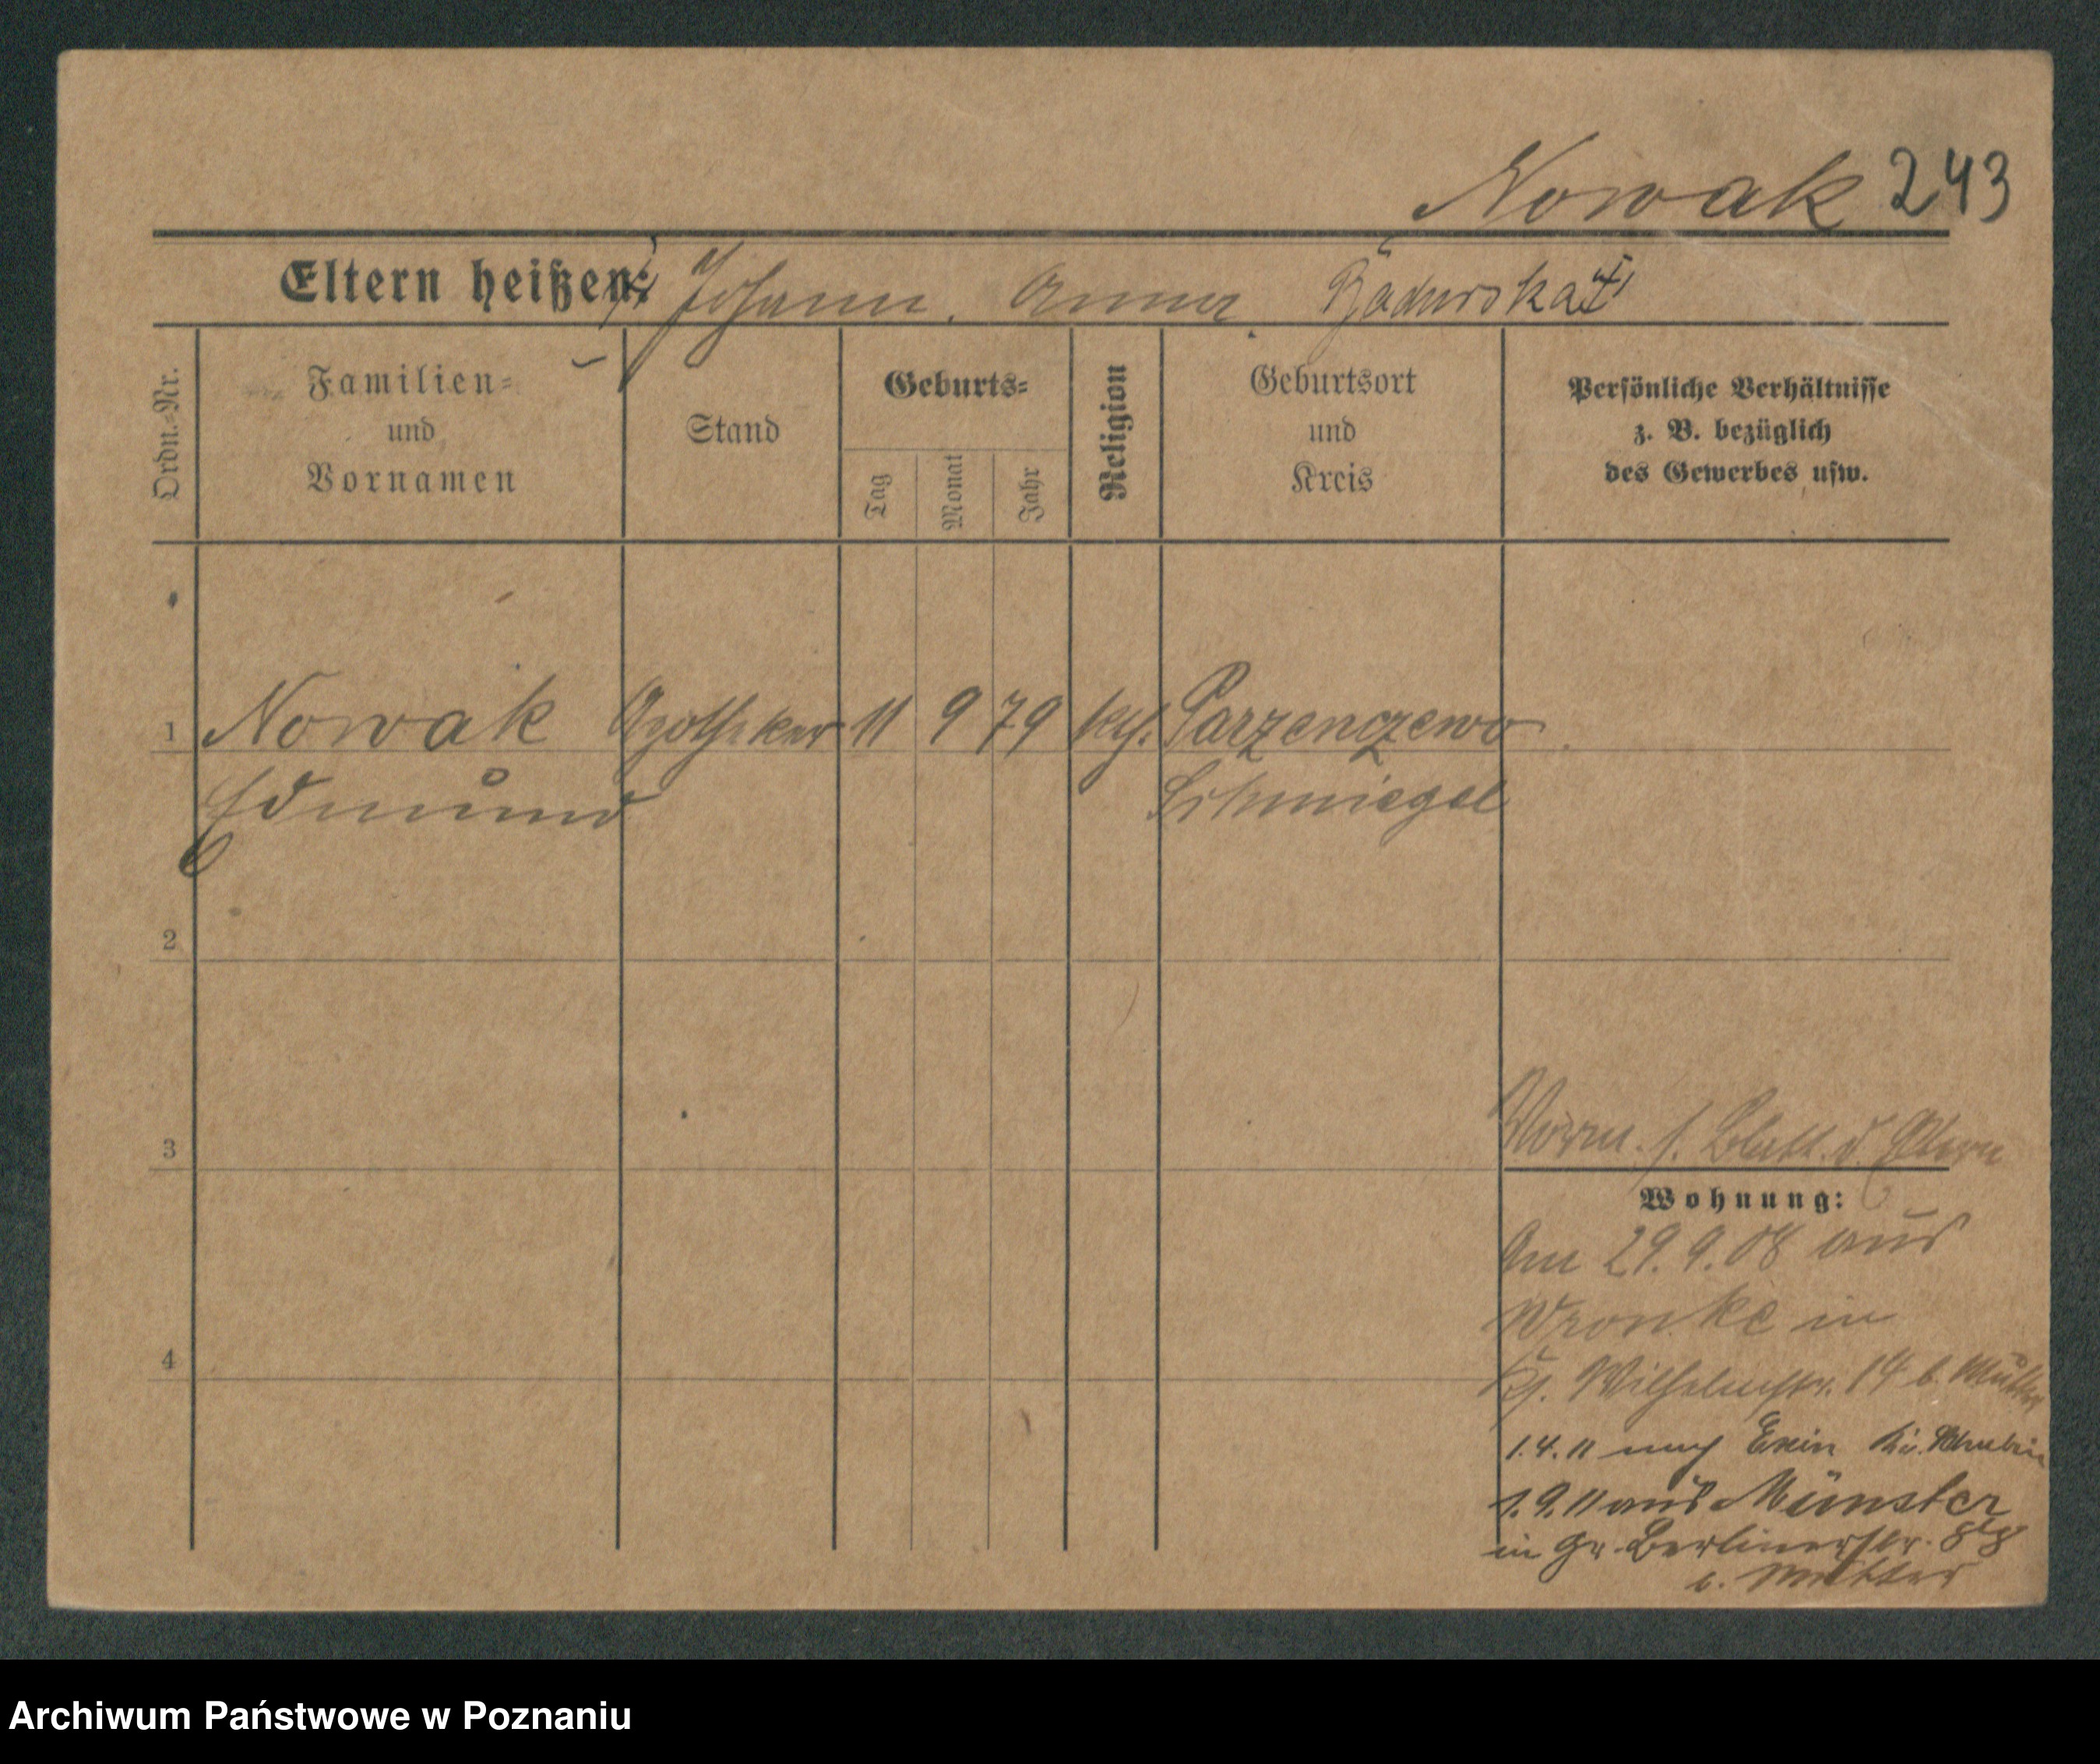 Nowak 243
Eltern heißen: Johann, Anna
Ordn.-Nr.
Familien-
und
Vornamen
Stand
Geburts-
Tag
Monat
Jahr
Religion
Geburtsort
und
Kreis
Persönliche Verhältnisse
z. B. bezüglich
des Gewerbes usw.
1 Nowak Apotheker 11 9 79 kth. Parzenczewo
Edmund Schmiegel
2
3
Vorm. s. Blatt d. Eltern
Wohnung:
Am 29.9.08 aus
Wronke in
4
Wilhelmstr. 14 b. Mutter
1.4.11 nach Exin Kr. Schubin
1.9.11 aus Münster
in Gr. Berlinerstr. 88
b. Mutter
Archiwum Państwowe w Poznaniu